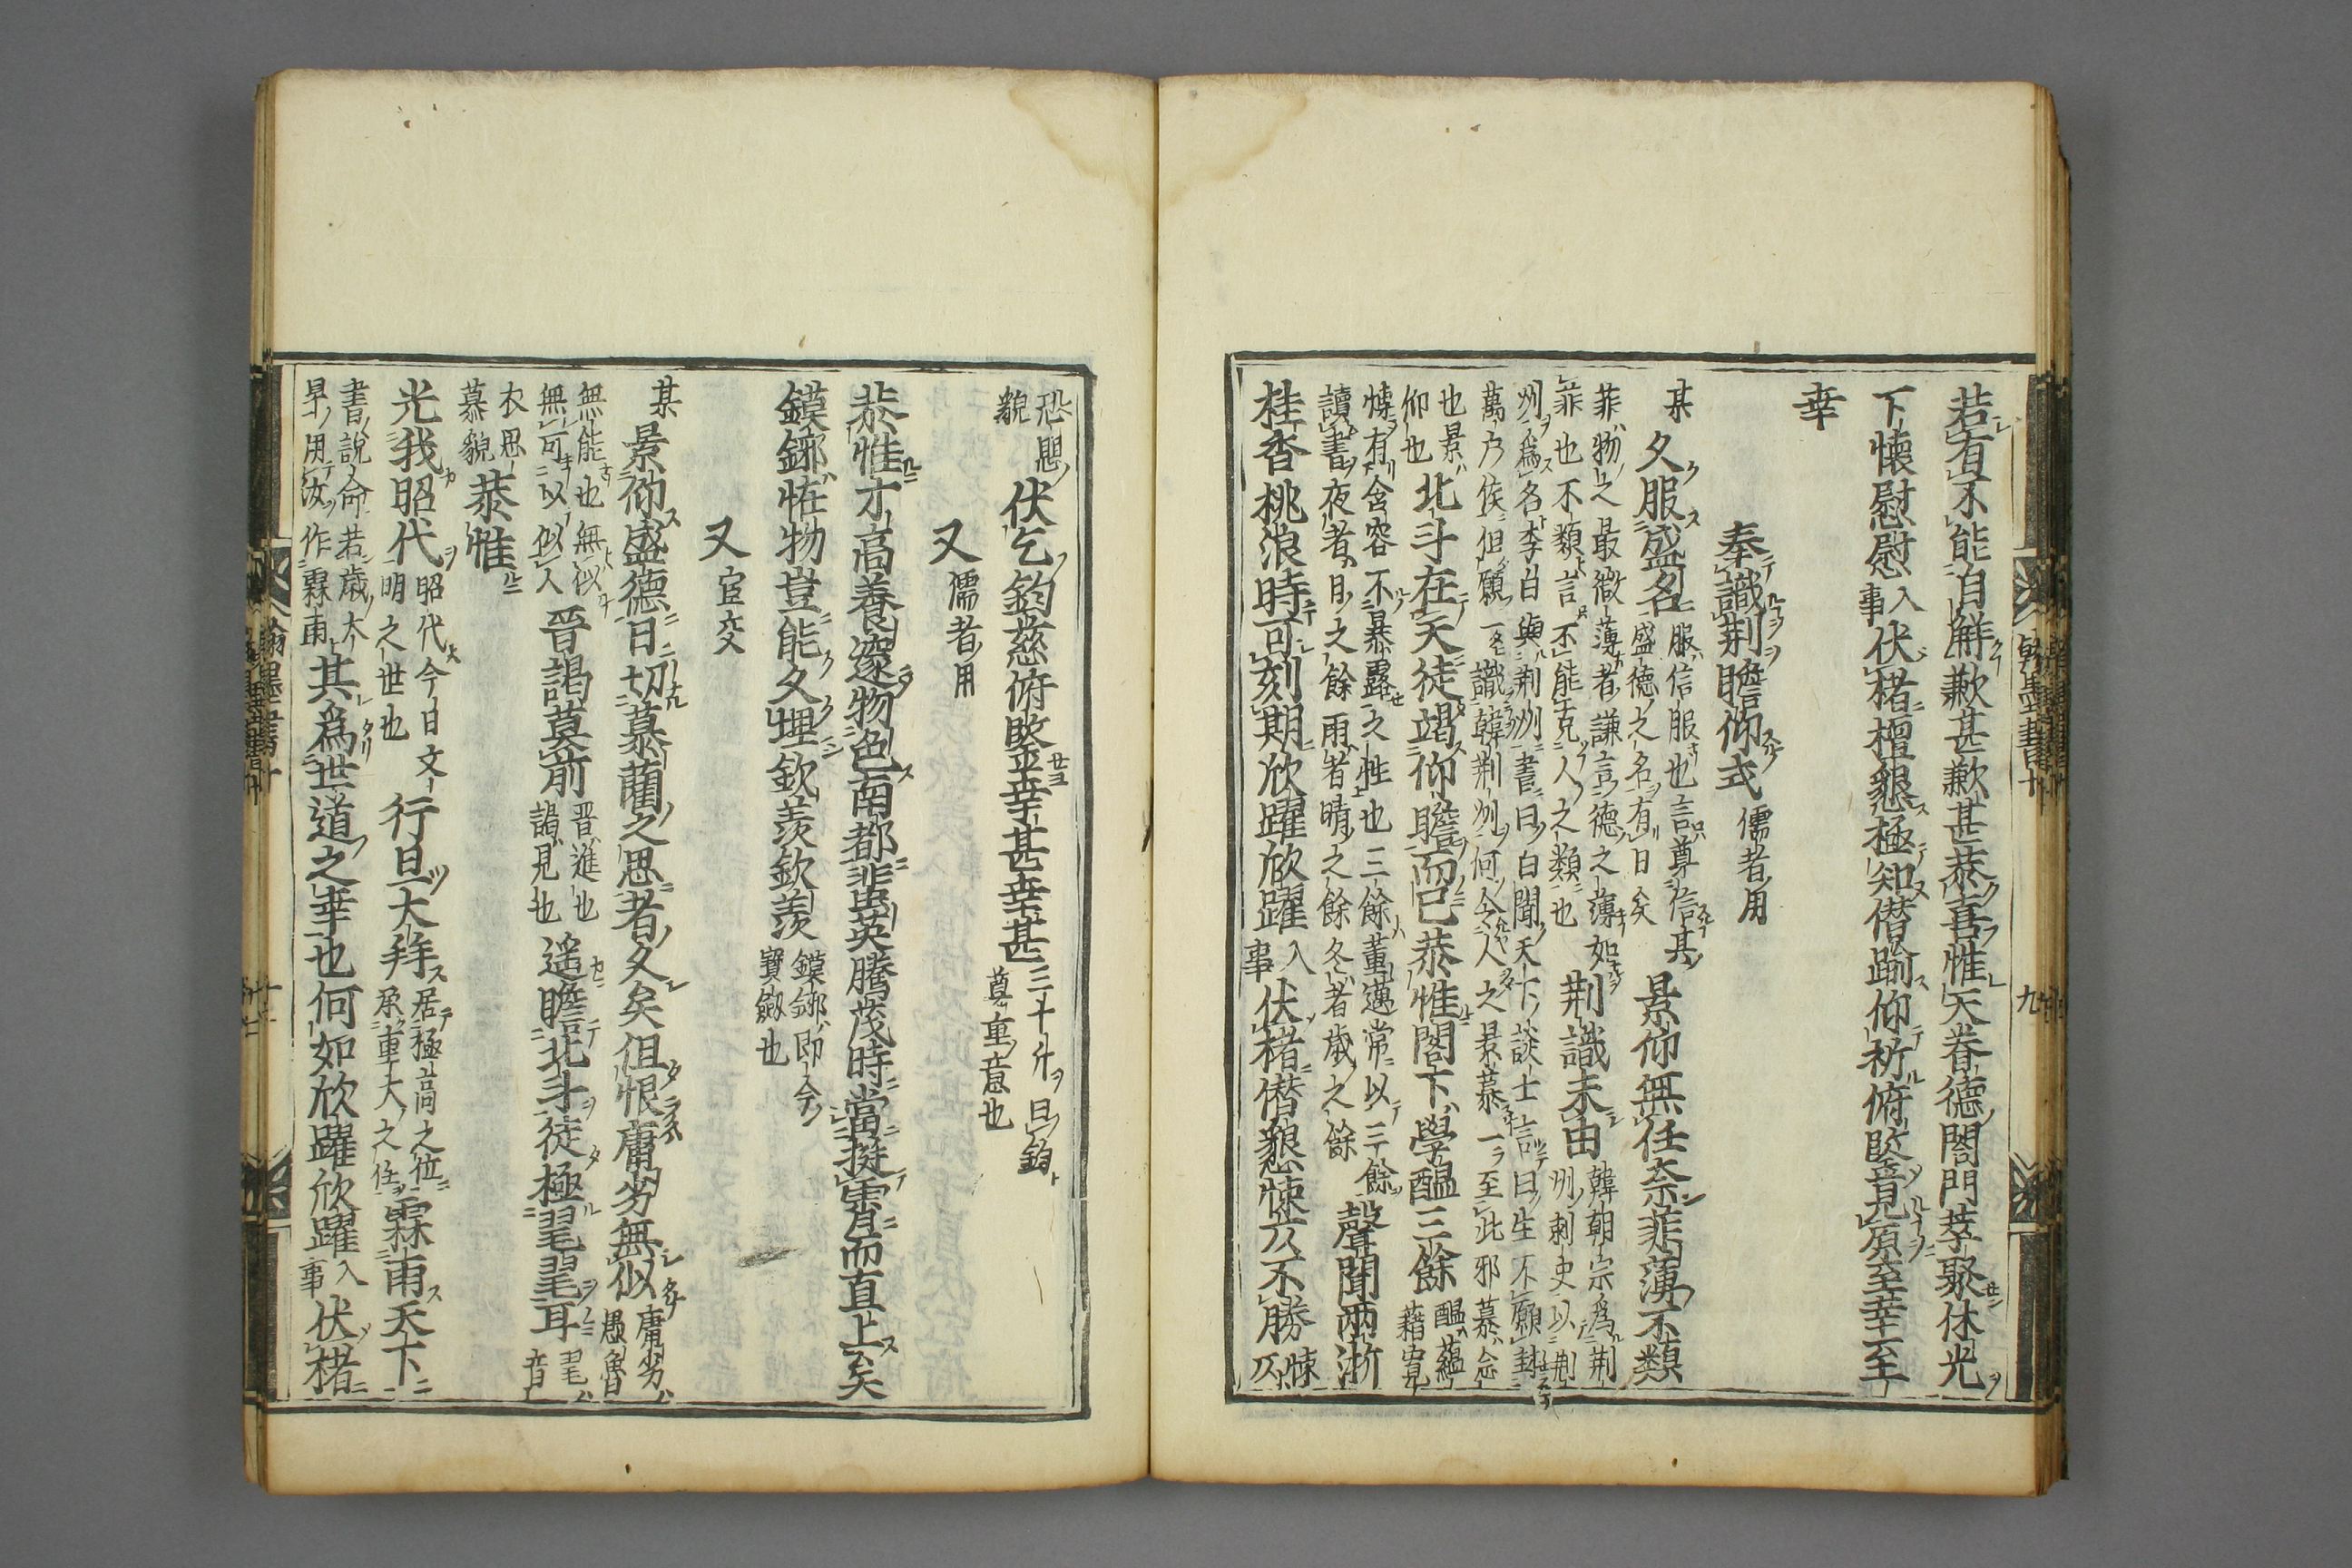 若有不能自解歉甚歉甚恭喜惟天眷德閤門萃聚休光
下懷慰慰入事伏楮檀懇極知僭踰仰祈俯賢竟原至幸至
幸
奉識荆瞻仰式 儒者用
某久服盛名服信服也言尊信其盛德之名有日矣景仰無任奈菲薄不類
菲物之最微薄者謙言德之薄如菲也不類言不能克人之類也荆識未由韓朝宗爲荆州刺史以荆
州爲名李白與荆州書曰白聞天下談士言曰生不願封萬户侯但願一識韓荆州何令人之景慕一至此邪慕念
也景仰也北斗在天徒竭仰瞻而已恭惟閣下學醞三餘醞蘊藉寬
愽有含容不暴露之性也三餘董遇常以三餘讀書夜者日之餘雨者晴之餘冬者歳之餘聲聞兩浙
桂香桃浪時可刻期欣躍欣躍入事伏楮僭懇悚仄不勝悚仄
恐懇貌伏乞鈞慈俯鑒幸甚幸甚三十斤曰鈞尊重意也
又 儒者用
恭惟才高養邃物色南都蜚英騰茂時當挺霄而直上矣
鏌鎁恠物豈能久埋欽羨欽羨鏌鎁即今寶劔也
又 宦交
某景仰盛德日切慕藺之思者久矣但恨庸劣無似庸劣愚魯
無能也無似無可以似人晉謁莫前晉進也謁見也遥瞻北斗徒極毣毣耳毣音
木思慕貌恭惟
光我昭代昭代今日文明之世也行且大拜居極高之位承重大之任霖雨天下
書說命若歳大旱用汝作霖雨其爲世道之幸也何如欣躍欣躍入事伏楮
翰墨書十
九